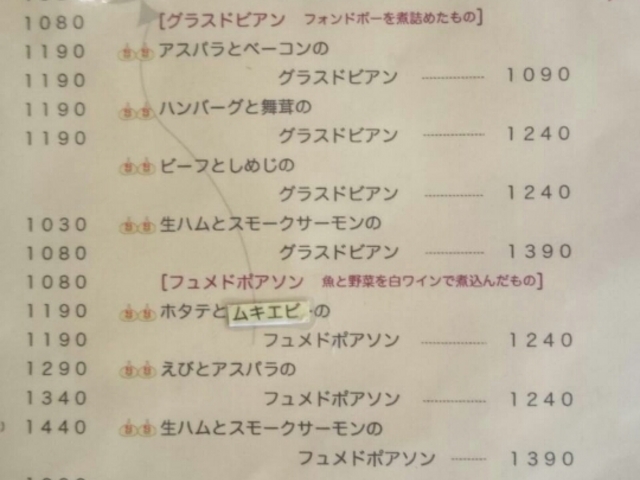 1080 [グラスドビアン フォンドボーを煮詰めたもの]
1190 アスパラとベーコンの
1190 グラスドビアン 1090
1190 ハンバーグと舞茸の
1190 グラスドビアン 1240
ビーフとしめじの
グラスドビアン 1240
1030 生ハムとスモークサーモンの
1080 グラスドビアン 1390
1080 [フュメドポアソン 魚と野菜を白ワインで煮込んだもの]
1190 ホタテとムキエビの
1190 フュメドポアソン 1240
1290 えびとアスパラの
1340 フュメドポアソン 1240
1440 生ハムとスモークサーモンの
フュメドポアソン 1390